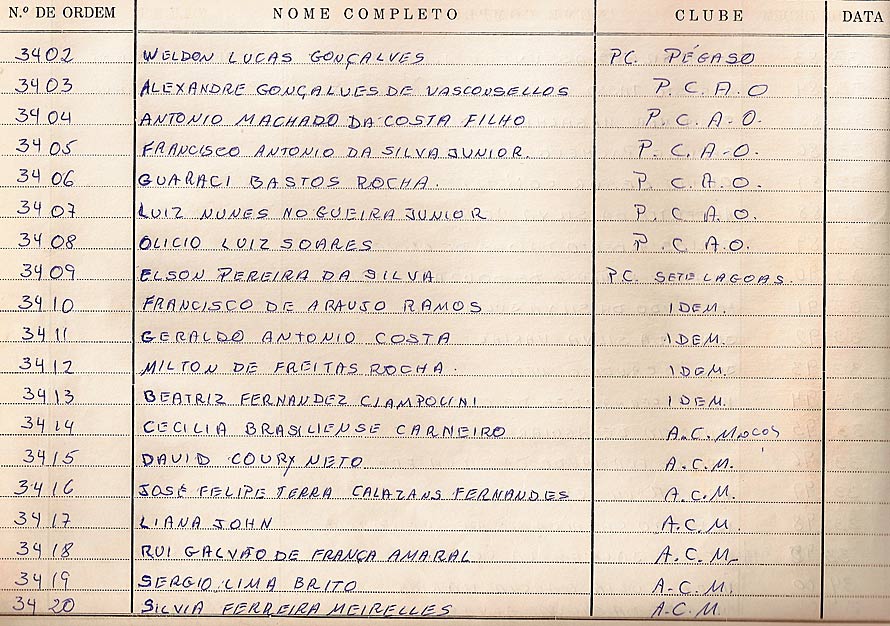 N.º DE ORDEM NOME COMPLETO CLUBE DATA
3402 WELDON LUCAS GONÇALVES PC. PÉGASO
3403 ALEXANDRE GONÇALVES DE VASCONSELLOS P.C.A.O
3404 ANTONIO MACHADO DA COSTA FILHO P.C.A.O.
3405 FRANCISCO ANTONIO DA SILVA JUNIOR. P.C.A.O.
3406 GUARACI BASTOS ROCHA. P.C.A.O.
3407 LUIZ NUNES NOGUEIRA JUNIOR P.C.A.O.
3408 OLICIO LUIZ SOARES P.C.A.O.
3409 ELSON PEREIRA DA SILVA PC. SETE LAGOAS.
3410 FRANCISCO DE ARAUJO RAMOS IDEM.
3411 GERALDO ANTONIO COSTA IDEM.
3412 MILTON DE FREITAS ROCHA. IDEM.
3413 BEATRIZ FERNANDEZ CIAMPOLINI IDEM.
3414 CECILIA BRASILIENSE CARNEIRO A.C.
3415 DAVID COURY NETO A.C.M.
3416 JOSÉ FELIPE TERRA CALAZANS FERNANDES A.C.M.
3417 LIANA JOHN A.C.M.
3418 RUI GALVÃO DE FRANÇA AMARAL A.C.M
3419 SERGIO LIMA BRITO A.C.M.
3420 SILVIA FERREIRA MEIRELLES A.C.M